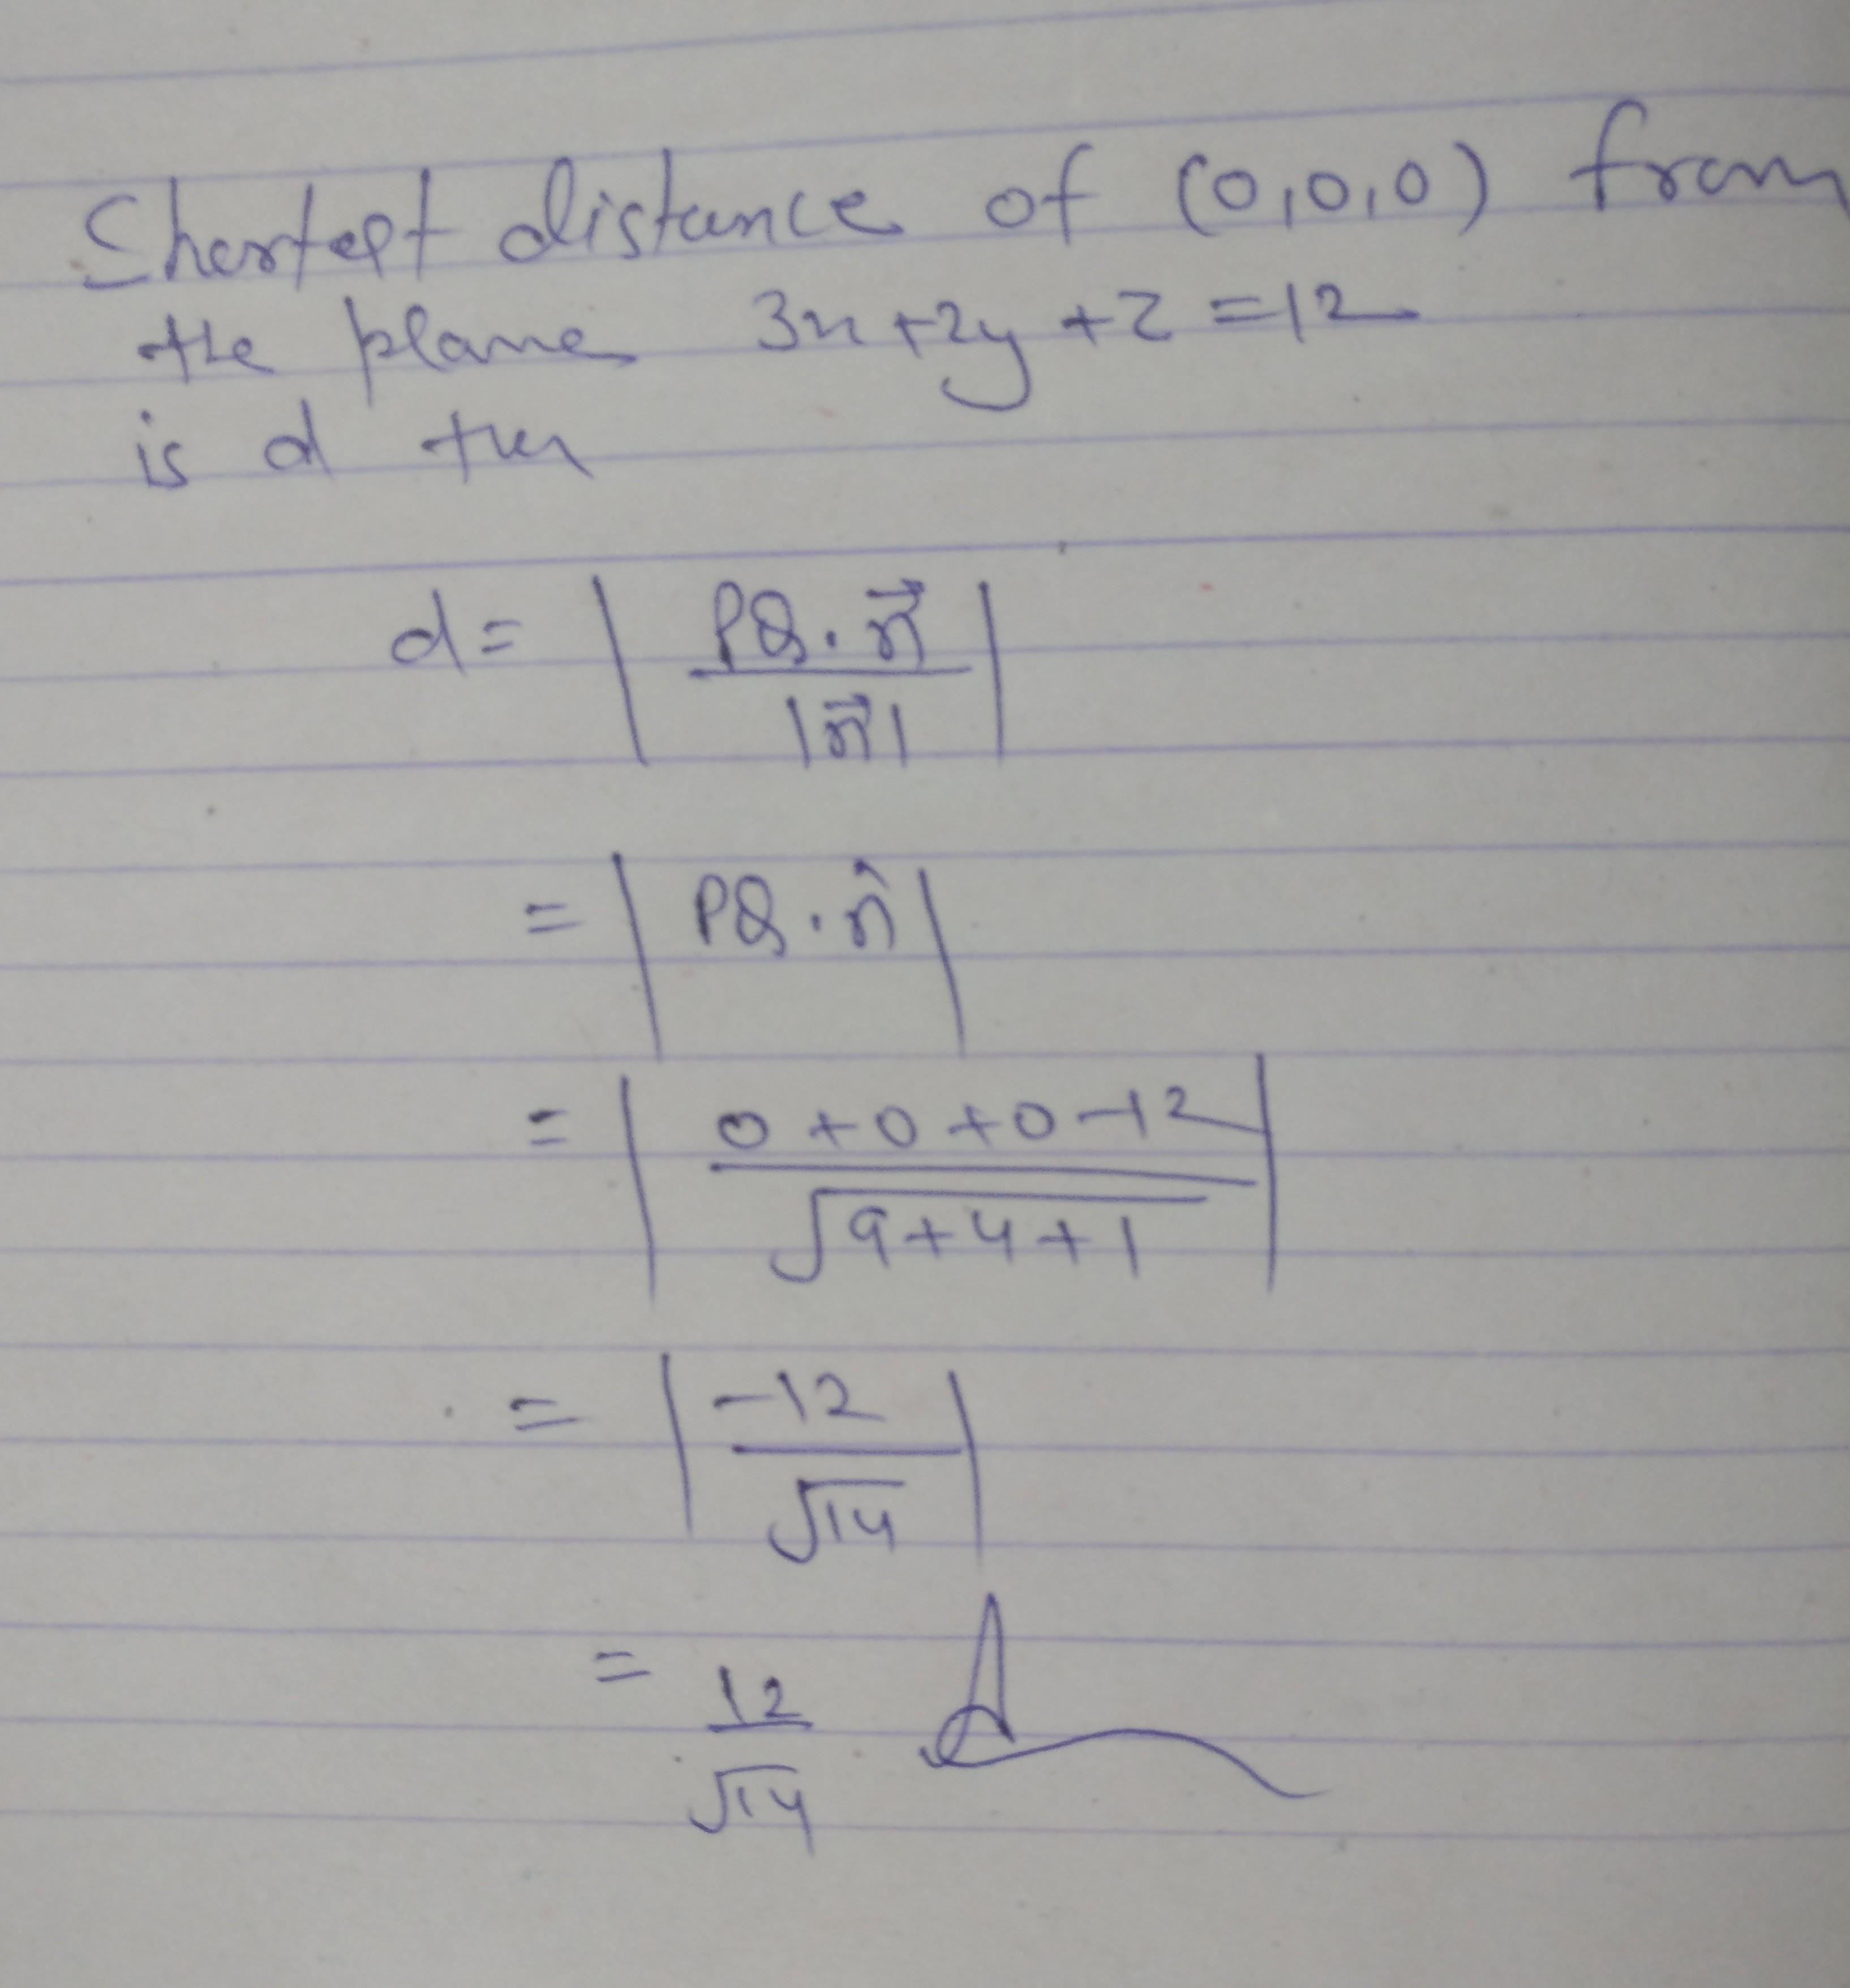 Shortest distance of (0,0,0) from
the plane 3x+2y+z=12
is d then
d= | PQ.n⃗ / |n⃗| |
= | PQ.n̂ |
= | 0+0+0-12 / √9+4+1 |
= | -12 / √14 |
= 12 / √14